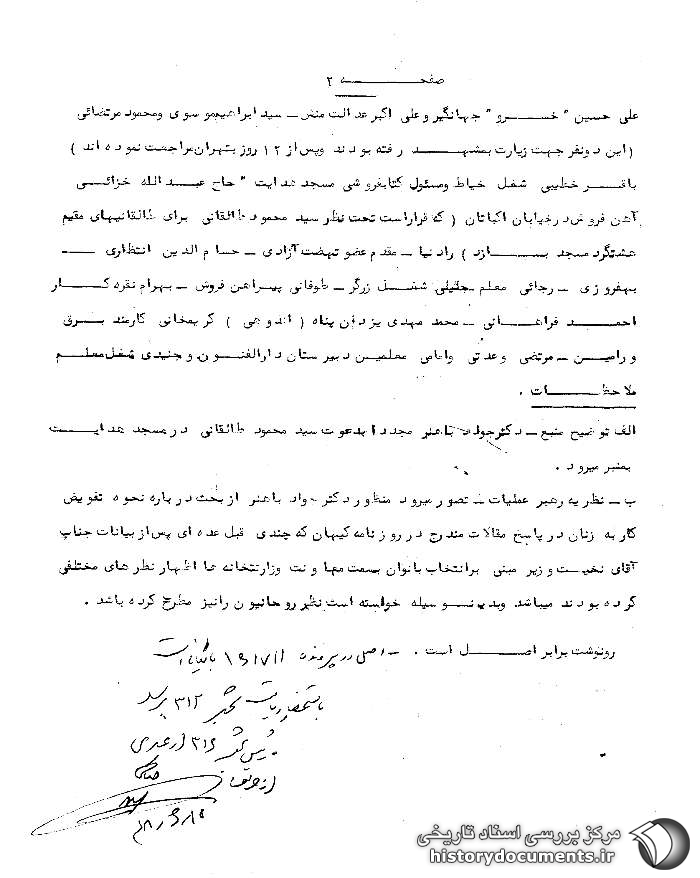 صفحــــــه ۲
علی حسین " خســـرو " جهانگیر و علی اکبر عدالت منش ـ سید ابراهیم موسوی و محمود مرتضائی
( این دو نفر جهت زیارت بمشهـــد رفته بودند و پس از ۱۲ روز بتهران مراجعت نموده اند )
باقــر خطیبی شغل خیاط و مسئول کتابفروشی مسجد هدایت " حاج عبــد الله خزائــی
آهن فروش در خیابان اکباتان ( که قرار است تحت نظر سید محمود طالقانی برای طالقانیهای مقیم
هشتگرد مسجد بســازد ) راد نیا ـ مقدم عضو نهضت آزادی ـ حسام الدین انتظاری ـ
بهفروزی ـ رجائی معلم جلیلی شغــل زرگر ـ طوفانی پیراهن فروش ـ بهرام نقره کــار
احمــد فراهــانی ـ محمد مهدی یزدان پناه ( اندوهی ) کریمخانی کارمند بــرق
ورامیــن ـ مرتضی وعدتی و امامی معلمین دبیرستان دارالفنــون و جنیدی شغل معلــم
ملاحظــات .
الف توضیح منبع ـ دکتر جواد باهنر مجددا بدعوت سید محمود طالقانی در مسجد هدایــت
بمنبر میرود .
ب ـ نظریه رهبر عملیات ـ تصور میرود منظور دکتر جواد باهنر از بحث درباره نحوه تفویض
کار به زنان در پاسخ مقالات مندرج در روزنامه کیهان که چندی قبل عده ای پس از بیانات جناب
آقای نخست وزیر مبنی بر انتخاب بانوان بسمت معاونت وزارتخانه ها اظهار نظرهای مختلفی
کرده بودند میباشد وبدینــوسیله خواسته است نظر روحانیون را نیز مطرح کرده باشد .
رونوشت برابر اصــل است . ـ اصل در پرونده
۳۱۲
۳۱۶
مرکز بررسی اسناد تاریخی
historydocuments.ir